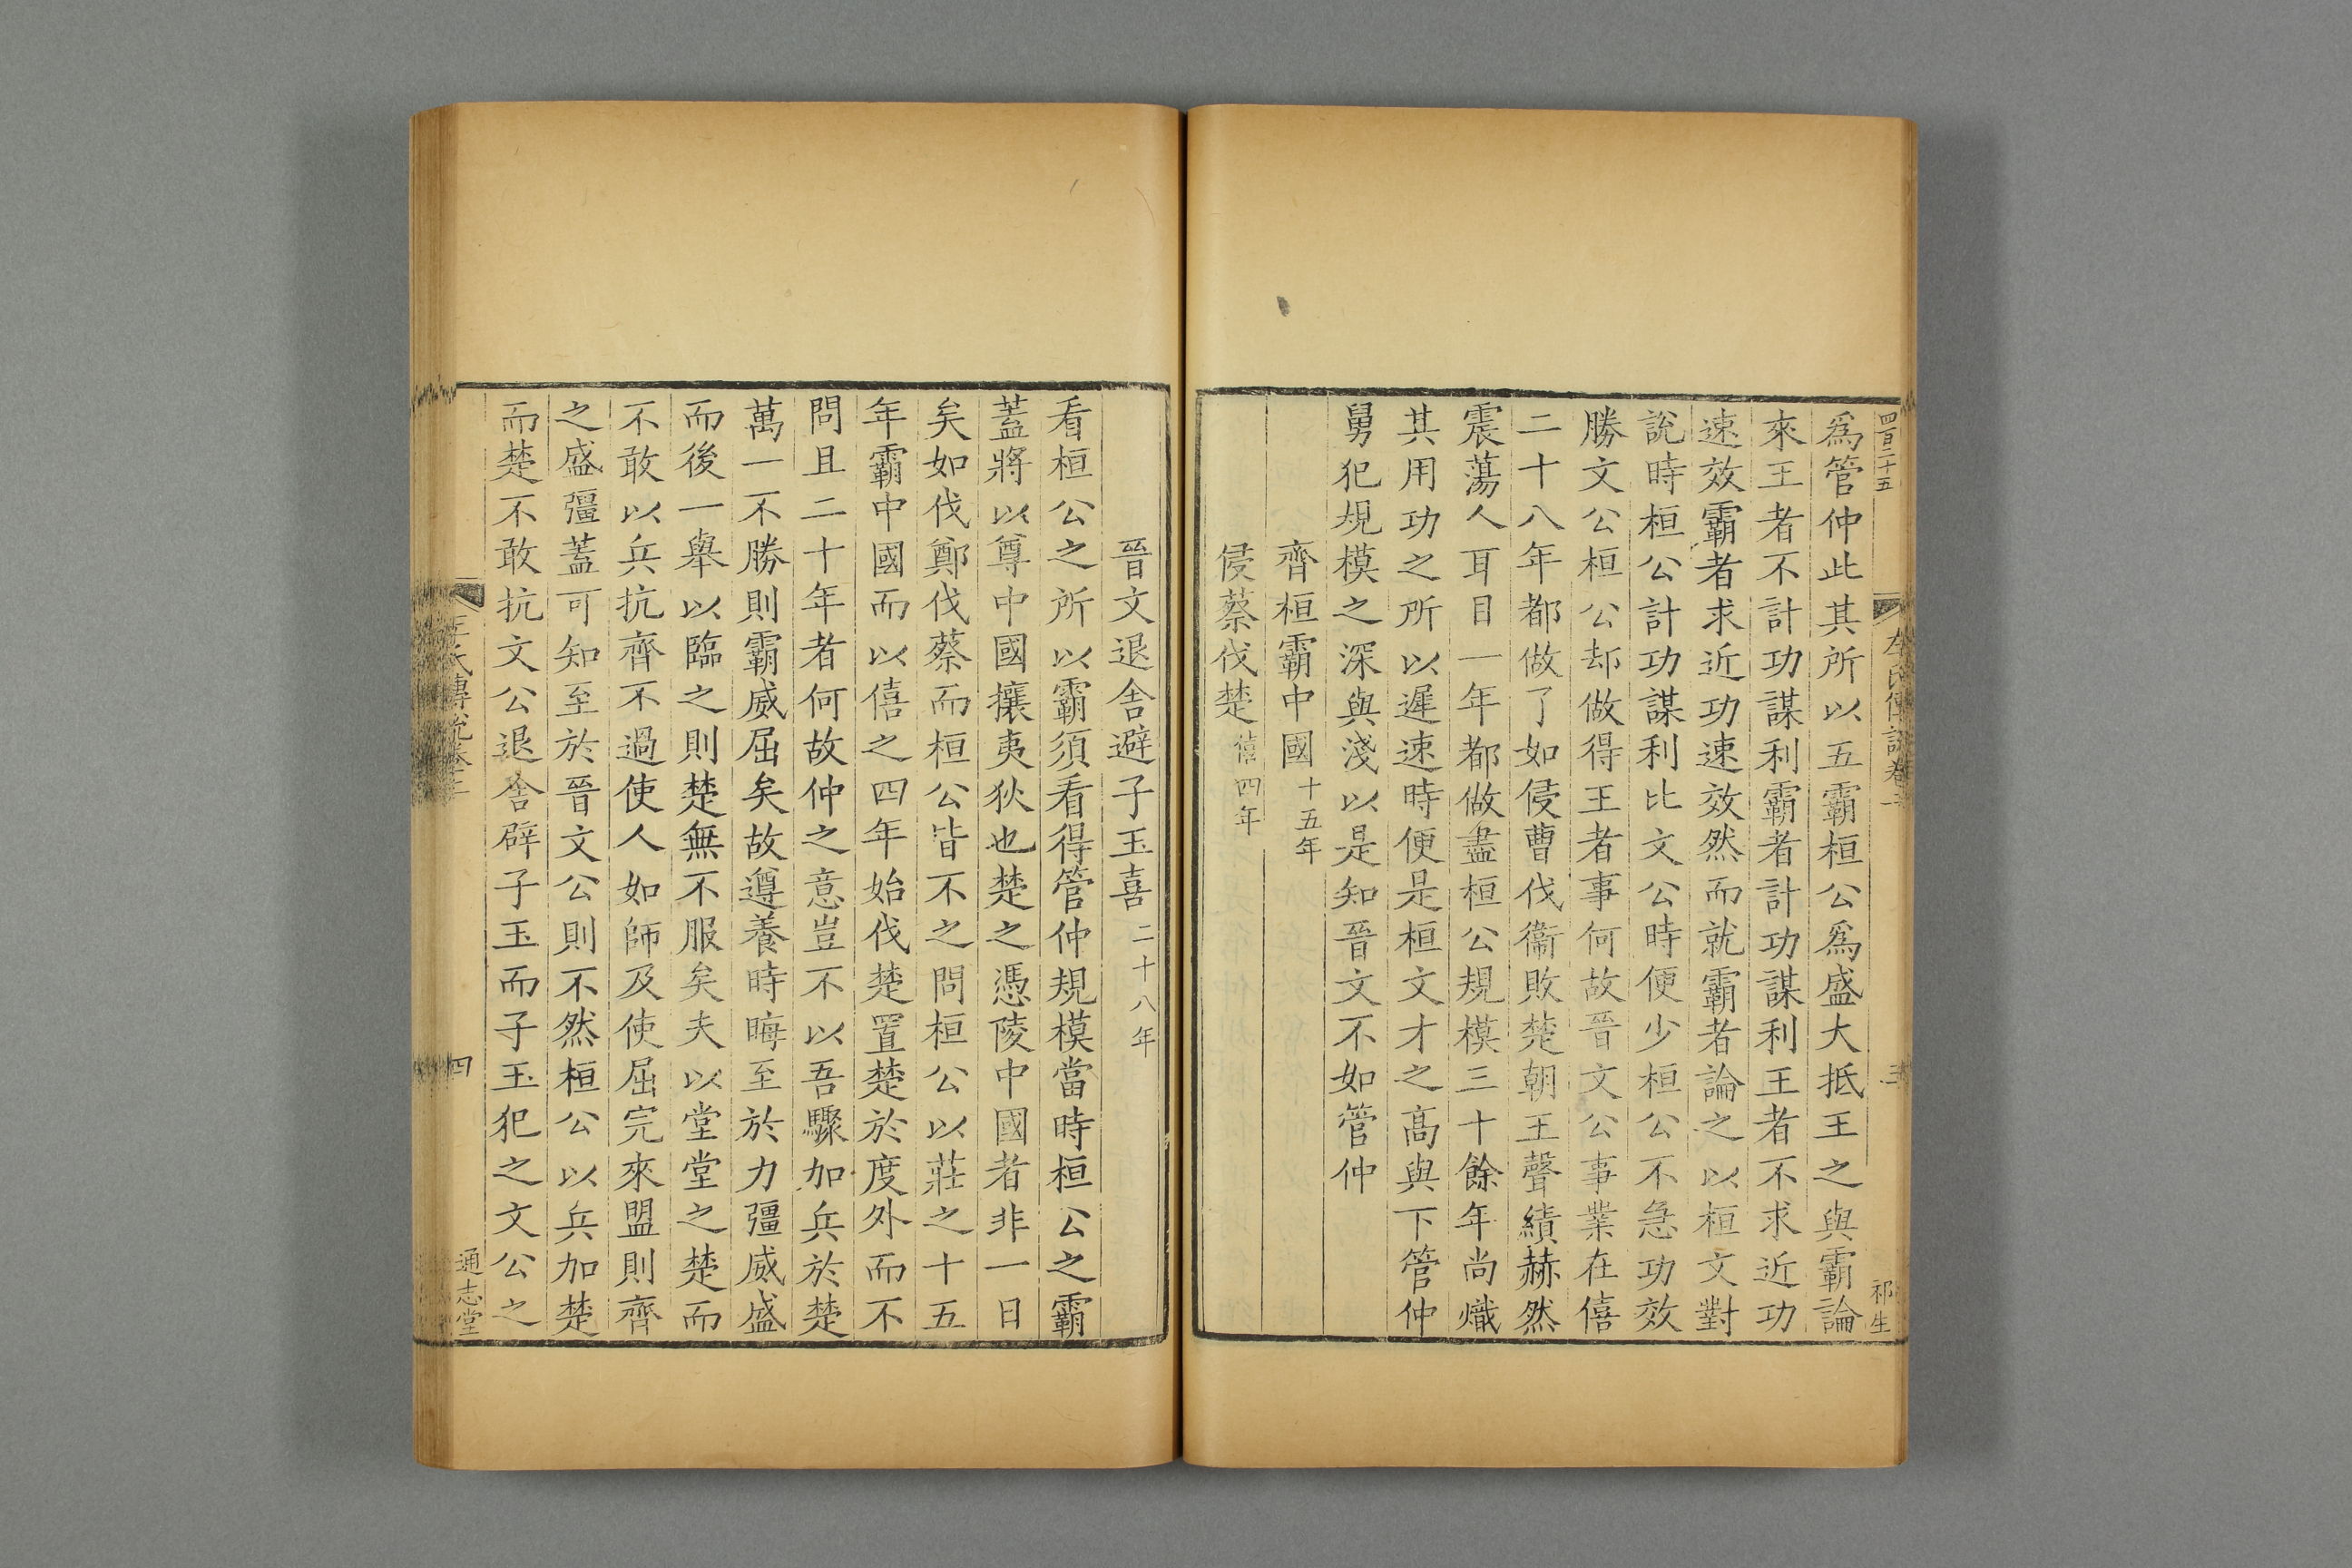 四百二十五
左氏傳說卷
三
祁生
爲管仲此其所以五霸桓公爲盛大抵王之與霸論
來王者不計功謀利霸者計功謀利王者不求近功
速效霸者求近功速效然而就霸者論之以桓文對
說時桓公計功謀利比文公時便少桓公不急功效
勝文公桓公却做得王者事何故晉文公事業在僖
二十八年都做了如侵曹伐衞敗楚朝王聲績赫然
震蕩人耳目一年都做盡桓公規模三十餘年尚熾
其用功之所以遲速時便是桓文才之高與下管仲
舅犯規模之深與淺以是知晉文不如管仲
齊桓霸中國十五年
侵蔡伐楚僖四年
晉文退舍避子玉喜二十八年
看桓公之所以霸須看得管仲規模當時桓公之霸
蓋將以尊中國攘夷狄也楚之憑陵中國者非一日
矣如伐鄭伐蔡而桓公皆不之問桓公以莊之十五
年霸中國而以僖之四年始伐楚置楚於度外而不
問且二十年者何故仲之意豈不以吾驟加兵於楚
萬一不勝則霸威屈矣故遵養時晦至於力彊威盛
而後一舉以臨之則楚無不服矣夫以堂堂之楚而
不敢以兵抗齊不過使人如師及使屈完來盟則齊
之盛彊蓋可知至於晉文公則不然桓公以兵加楚
而楚不敢抗文公退舍辟子玉而子玉犯之文公之
左氏傳說卷三
四
通志堂